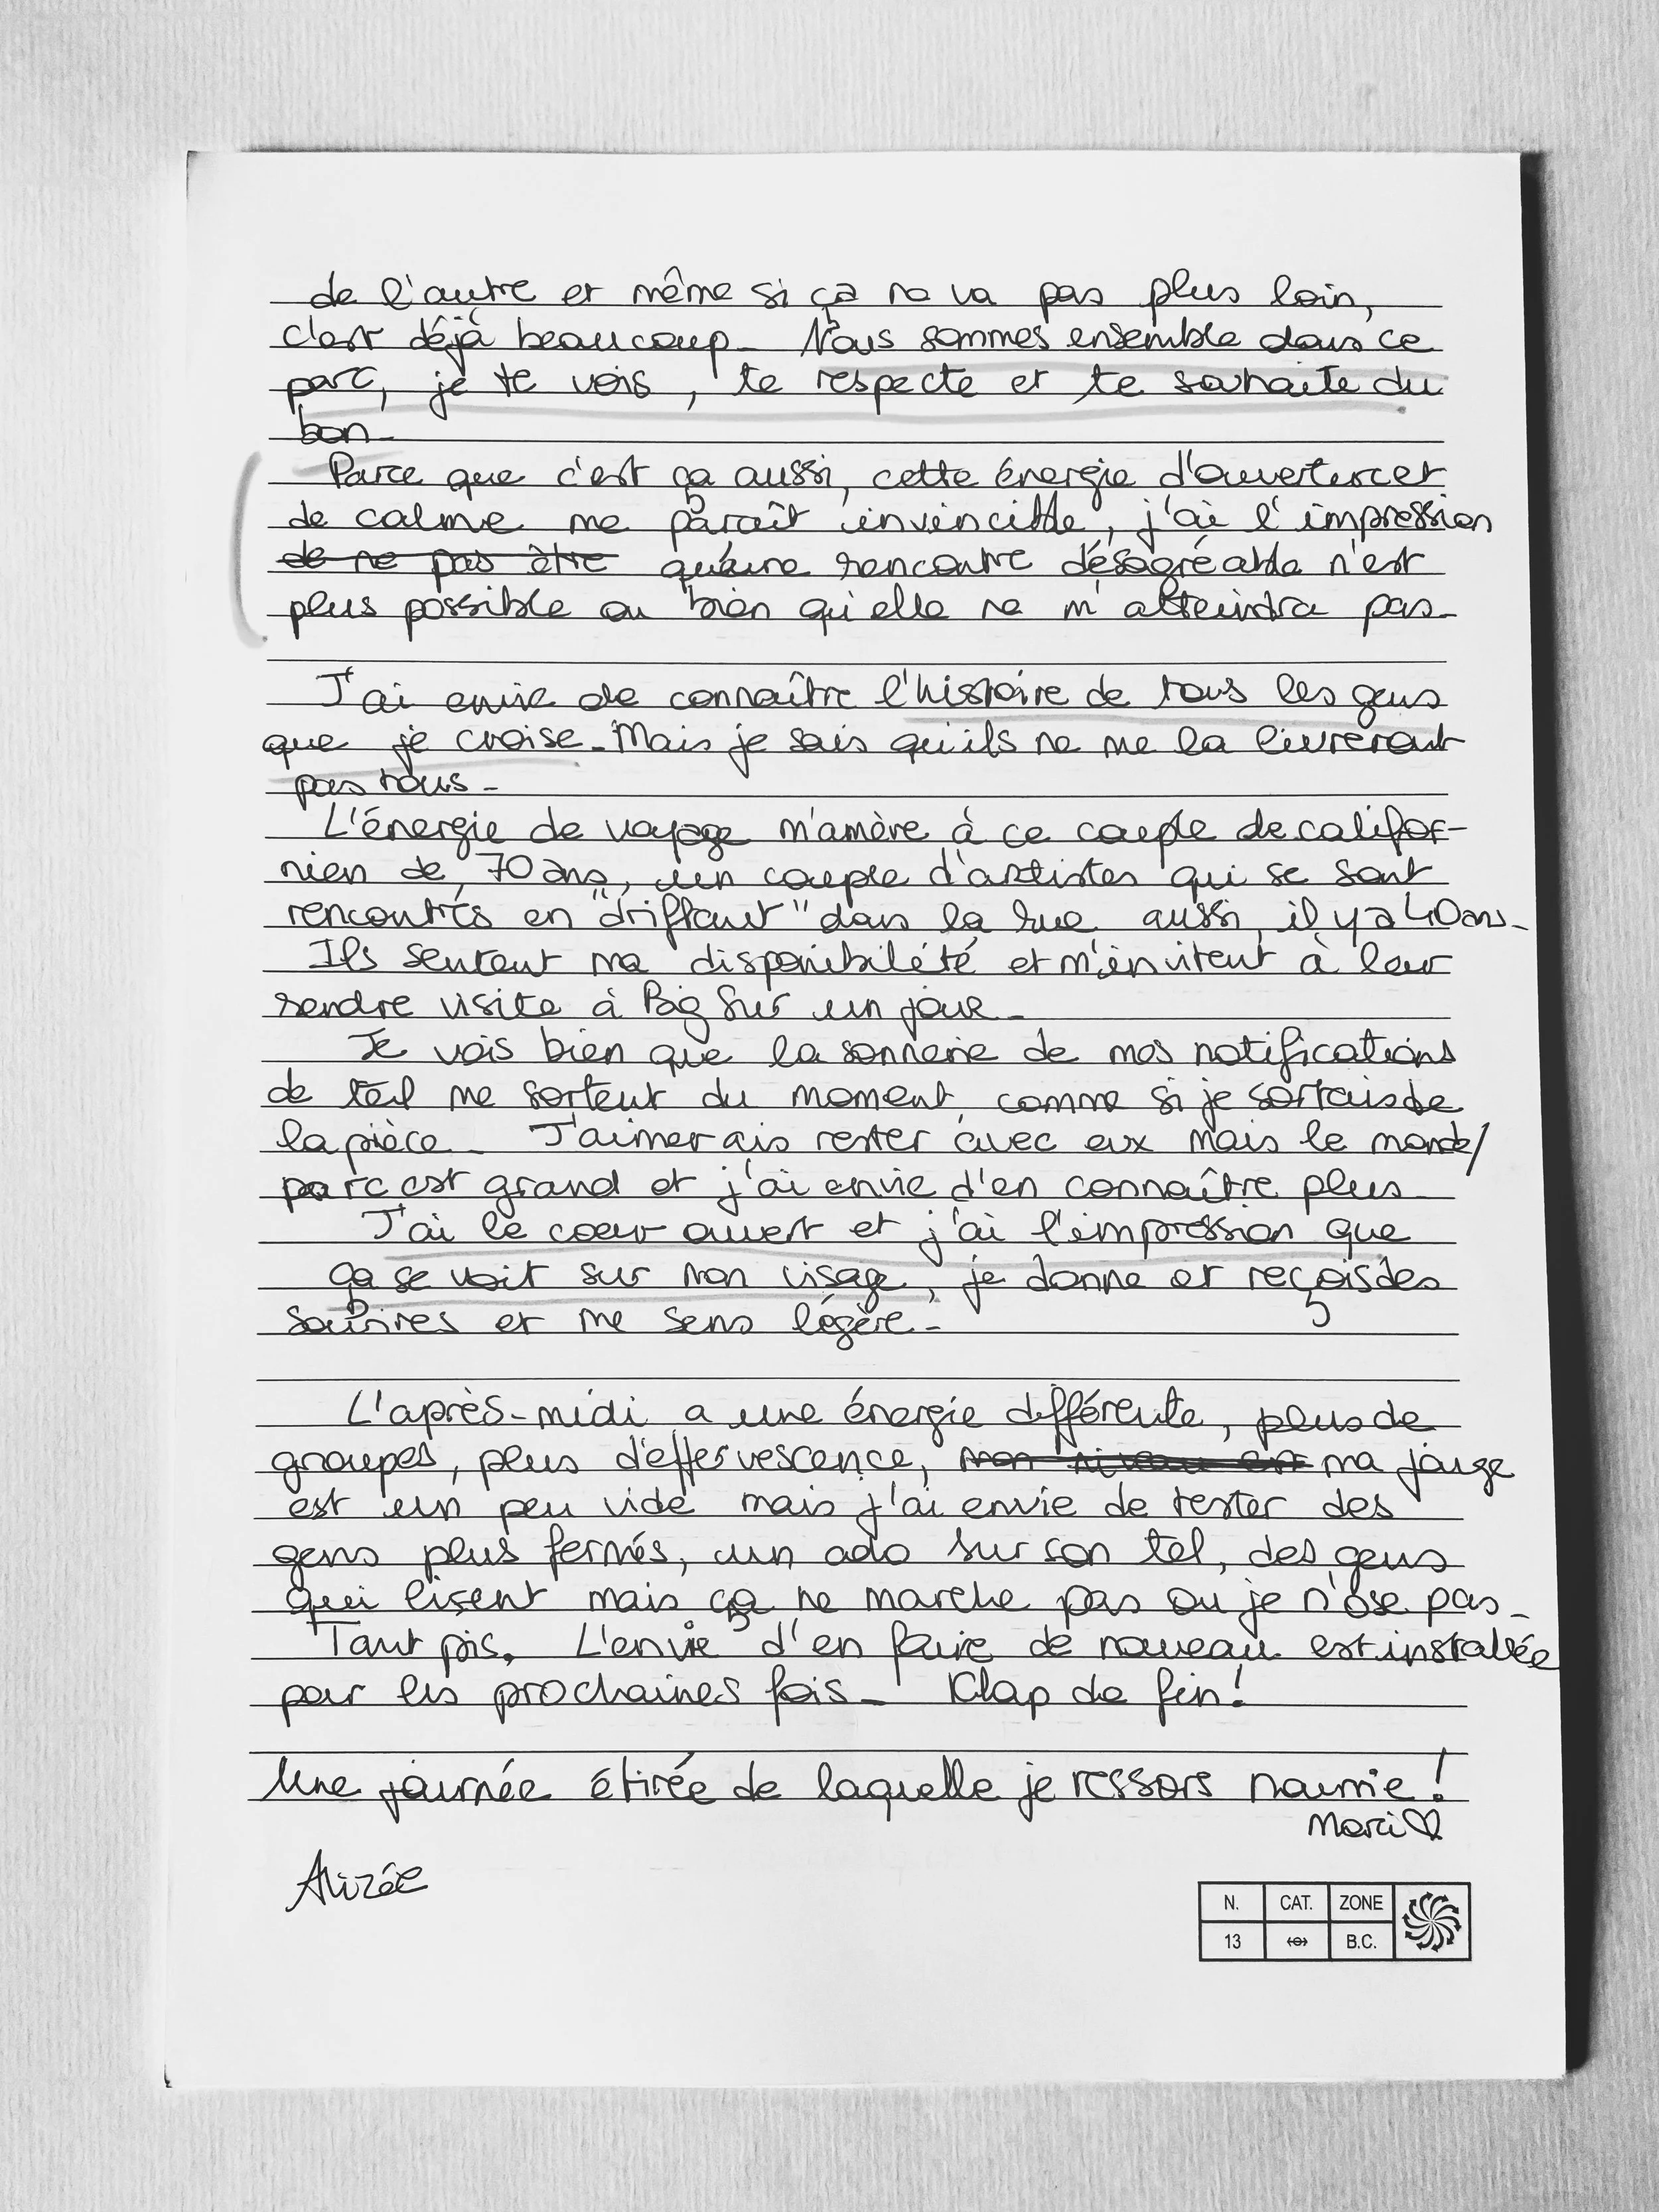 de l'autre et même si ça ne va pas plus loin,
c'est déjà beaucoup. Nous sommes ensemble dans ce
parc, je te vois, te respecte et te souhaite du
bon.
Parce que c'est ça aussi, cette énergie d'ouverture et
de calme me paraît invincible, j'ai l'impression
de ne pas être qu'une rencontre désagréable n'est
plus possible ou bien qu'elle ne m'atteindra pas.
J'ai envie de connaître l'histoire de tous les gens
que je croise. Mais je sais qu'ils ne me la livreront
pas tous.
L'énergie de voyage m'amène à ce couple de califor-
nien de 70 ans, un couple d'artistes qui se sont
rencontrés en "driftant" dans la rue aussi, il y a 40 ans.
Ils sentent ma disponibilité et m'invitent à leur
rendre visite à Big Sur un jour.
Je vois bien que la sonnerie de mes notifications
de tél me sortent du moment, comme si je sortais de
la pièce. J'aimerais rester avec eux mais le monde/
parc est grand et j'ai envie d'en connaître plus.
J'ai le coeur ouvert et j'ai l'impression que
ça se voit sur mon visage, je donne et reçois des
sourires et me sens légère.
L'après-midi a une énergie différente, plus de
groupes, plus d'effervescence, mon niveau est ma jauge
est un peu vide mais j'ai envie de tester des
gens plus fermés, un ado sur son tel, des gens
qui lisent mais ça ne marche pas ou je n'ose pas.
Tant pis. L'envie d'en faire de nouveau est installée
pour les prochaines fois. Klap de fin!
Une journée étirée de laquelle je ressors nourrie!
Merci
Alizée
N. CAT. ZONE
13 B.C.